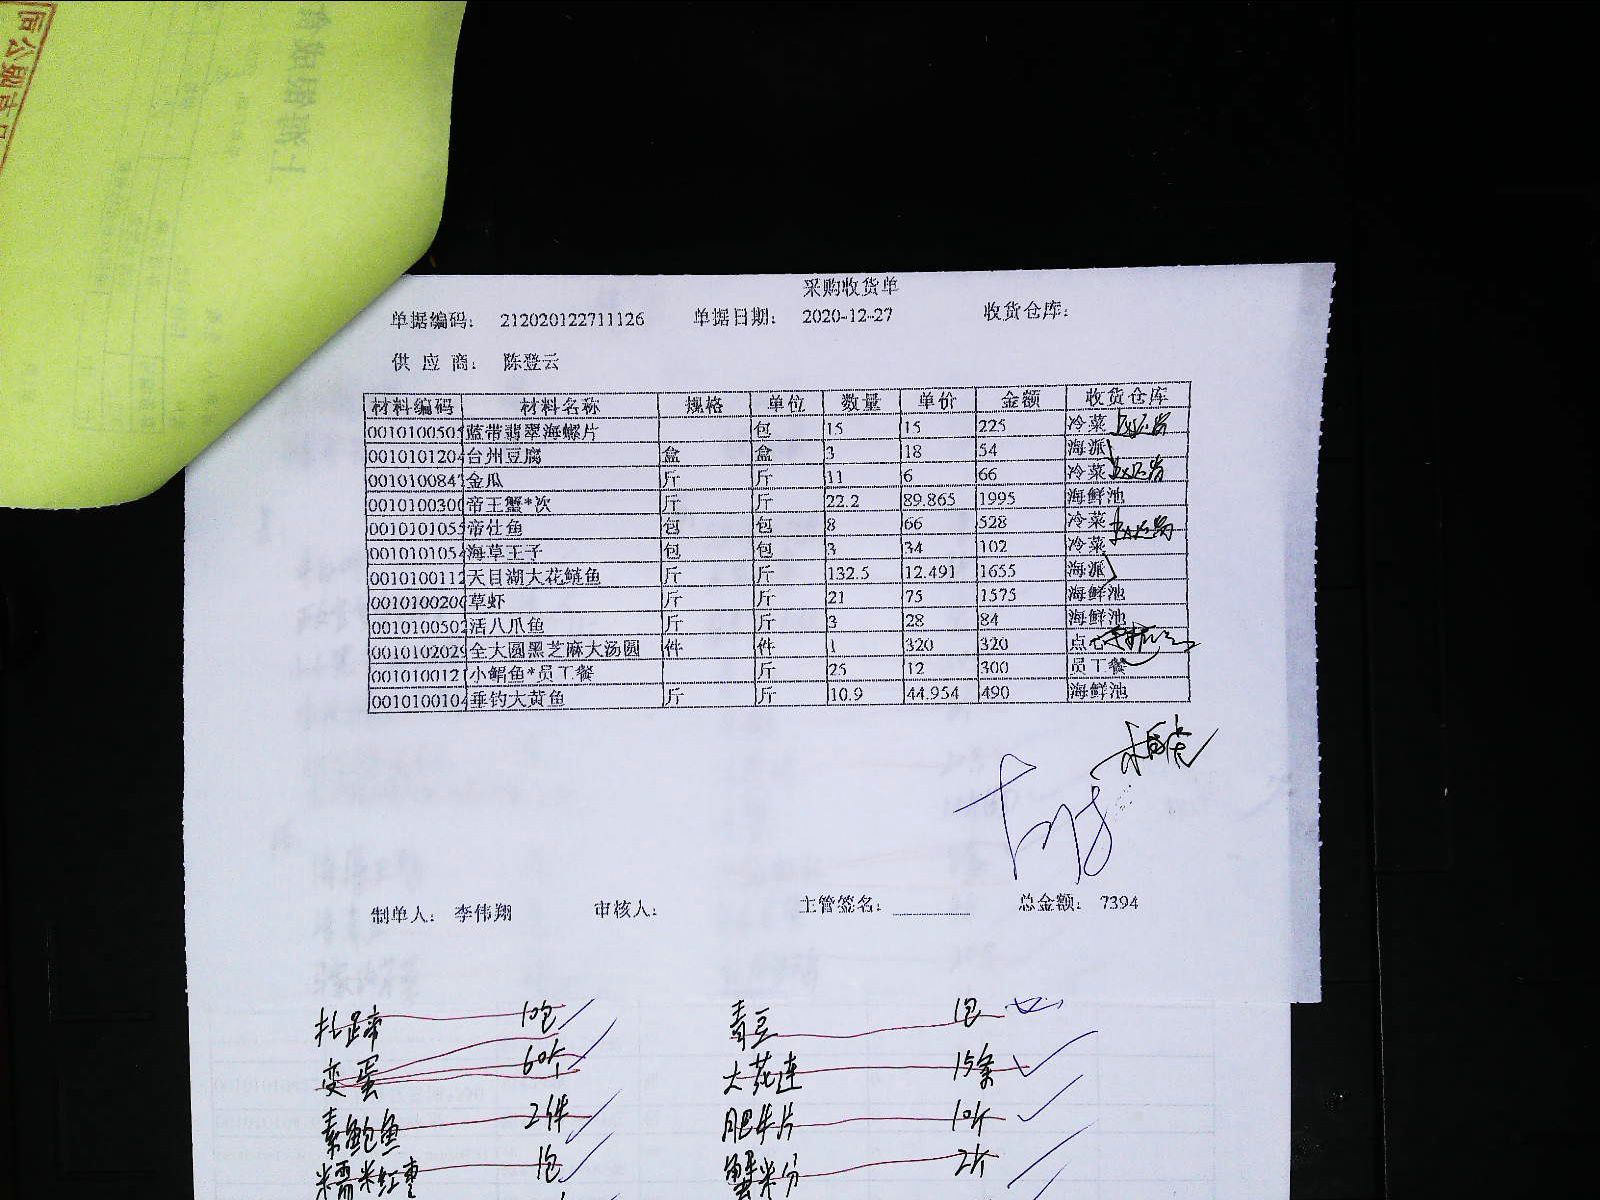 采购收货单
单据编码： 212020122711126 单据日期： 2020-12-27 收货仓库：
供 应 商： 陈登云
材料编码 材料名称 规格 单位 数量 单价 金额 收货仓库
0010100505 蓝带翡翠海螺片 包 15 15 225 冷菜
0010101204 台州豆腐 盒 盒 3 18 54 海派
001010084 金瓜 斤 斤 11 6 66 冷菜
0010100300 帝王蟹*次 斤 斤 22.2 89.865 1995 海鲜池
0010101055 帝仕鱼 包 包 8 66 528 冷菜
0010101054 海草王子 包 包 3 34 102 冷菜
0010100112 天目湖大花鲢鱼 斤 斤 132.5 12.491 1655 海派
0010100206 草虾 斤 斤 21 75 1575 海鲜池
0010100502 活八爪鱼 斤 斤 3 28 84 海鲜池
0010102029 全大圆黑芝麻大汤圆 件 件 1 320 320 点心
001010012 小鲳鱼*员工餐 斤 25 12 300 员工餐
0010100104 垂钓大黄鱼 斤 斤 10.9 44.954 490 海鲜池
制单人： 李伟翔 审核人： 主管签名： 总金额： 7394
扎蹄 10包 青豆 1包
变蛋 60个 大花连 15条
素鲍鱼 2件 肥牛片 10斤
糯米红枣 1包 蟹米分 2斤